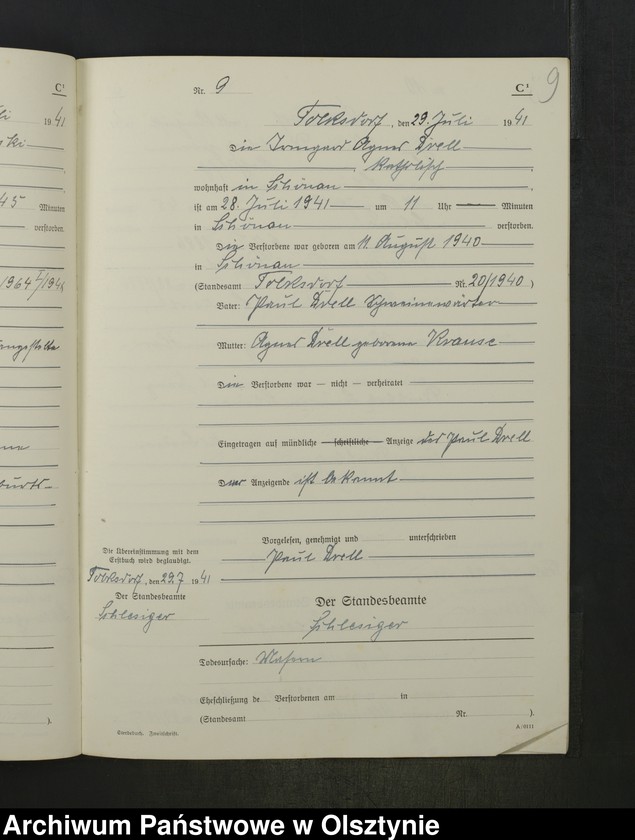 C¹
li 1941
ski
45 Minuten
verstorben.
1964
ne
).
Nr. 9
C¹
9
Tolksdorf, den 29. Juli 1941
Die Irmgard Agnes Drell
, katholisch,
wohnhaft in Schönau,
ist am 28. Juli 1941 um 11 Uhr Minuten
in Schönau verstorben.
Die Verstorbene war geboren am 11. August 1940
in Schönau
(Standesamt Tolksdorf Nr. 20/1940)
Vater: Paul Drell Schweinewärter
Mutter: Agnes Drell geborene Krause
Die Verstorbene war — nicht — verheiratet
Eingetragen auf mündliche — schriftliche — Anzeige des Paul Drell
Der Anzeigende ist bekannt
Vorgelesen, genehmigt und unterschrieben
Paul Drell
Die Übereinstimmung mit dem
Erstbuch wird beglaubigt.
Tolksdorf, den 29.7 1941
Der Standesbeamte
Schlesiger
Der Standesbeamte
Schlesiger
Todesursache: Masern
Eheschließung de Verstorbenen am in
(Standesamt Nr. ).
Sterbebuch. Zweitschrift.
Archiwum Państwowe w Olsztynie